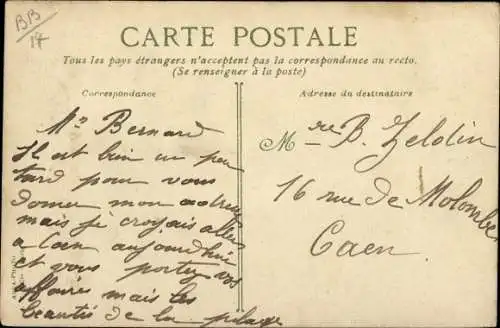 BB
17
CARTE POSTALE
Tous les pays étrangers n'acceptent pas la correspondance au recto.
(Se renseigner à la poste)
Correspondance
Adresse du destinataire
Mr Bernard
Il est bien un peu
tard pour vous
donner mon adresse
mais je croyais aller
a Caen aujourd'hui
et vous portez vos
affaires mais les
beautés de la plage
M re B. Zeldin
16 rue de Molombe
Caen